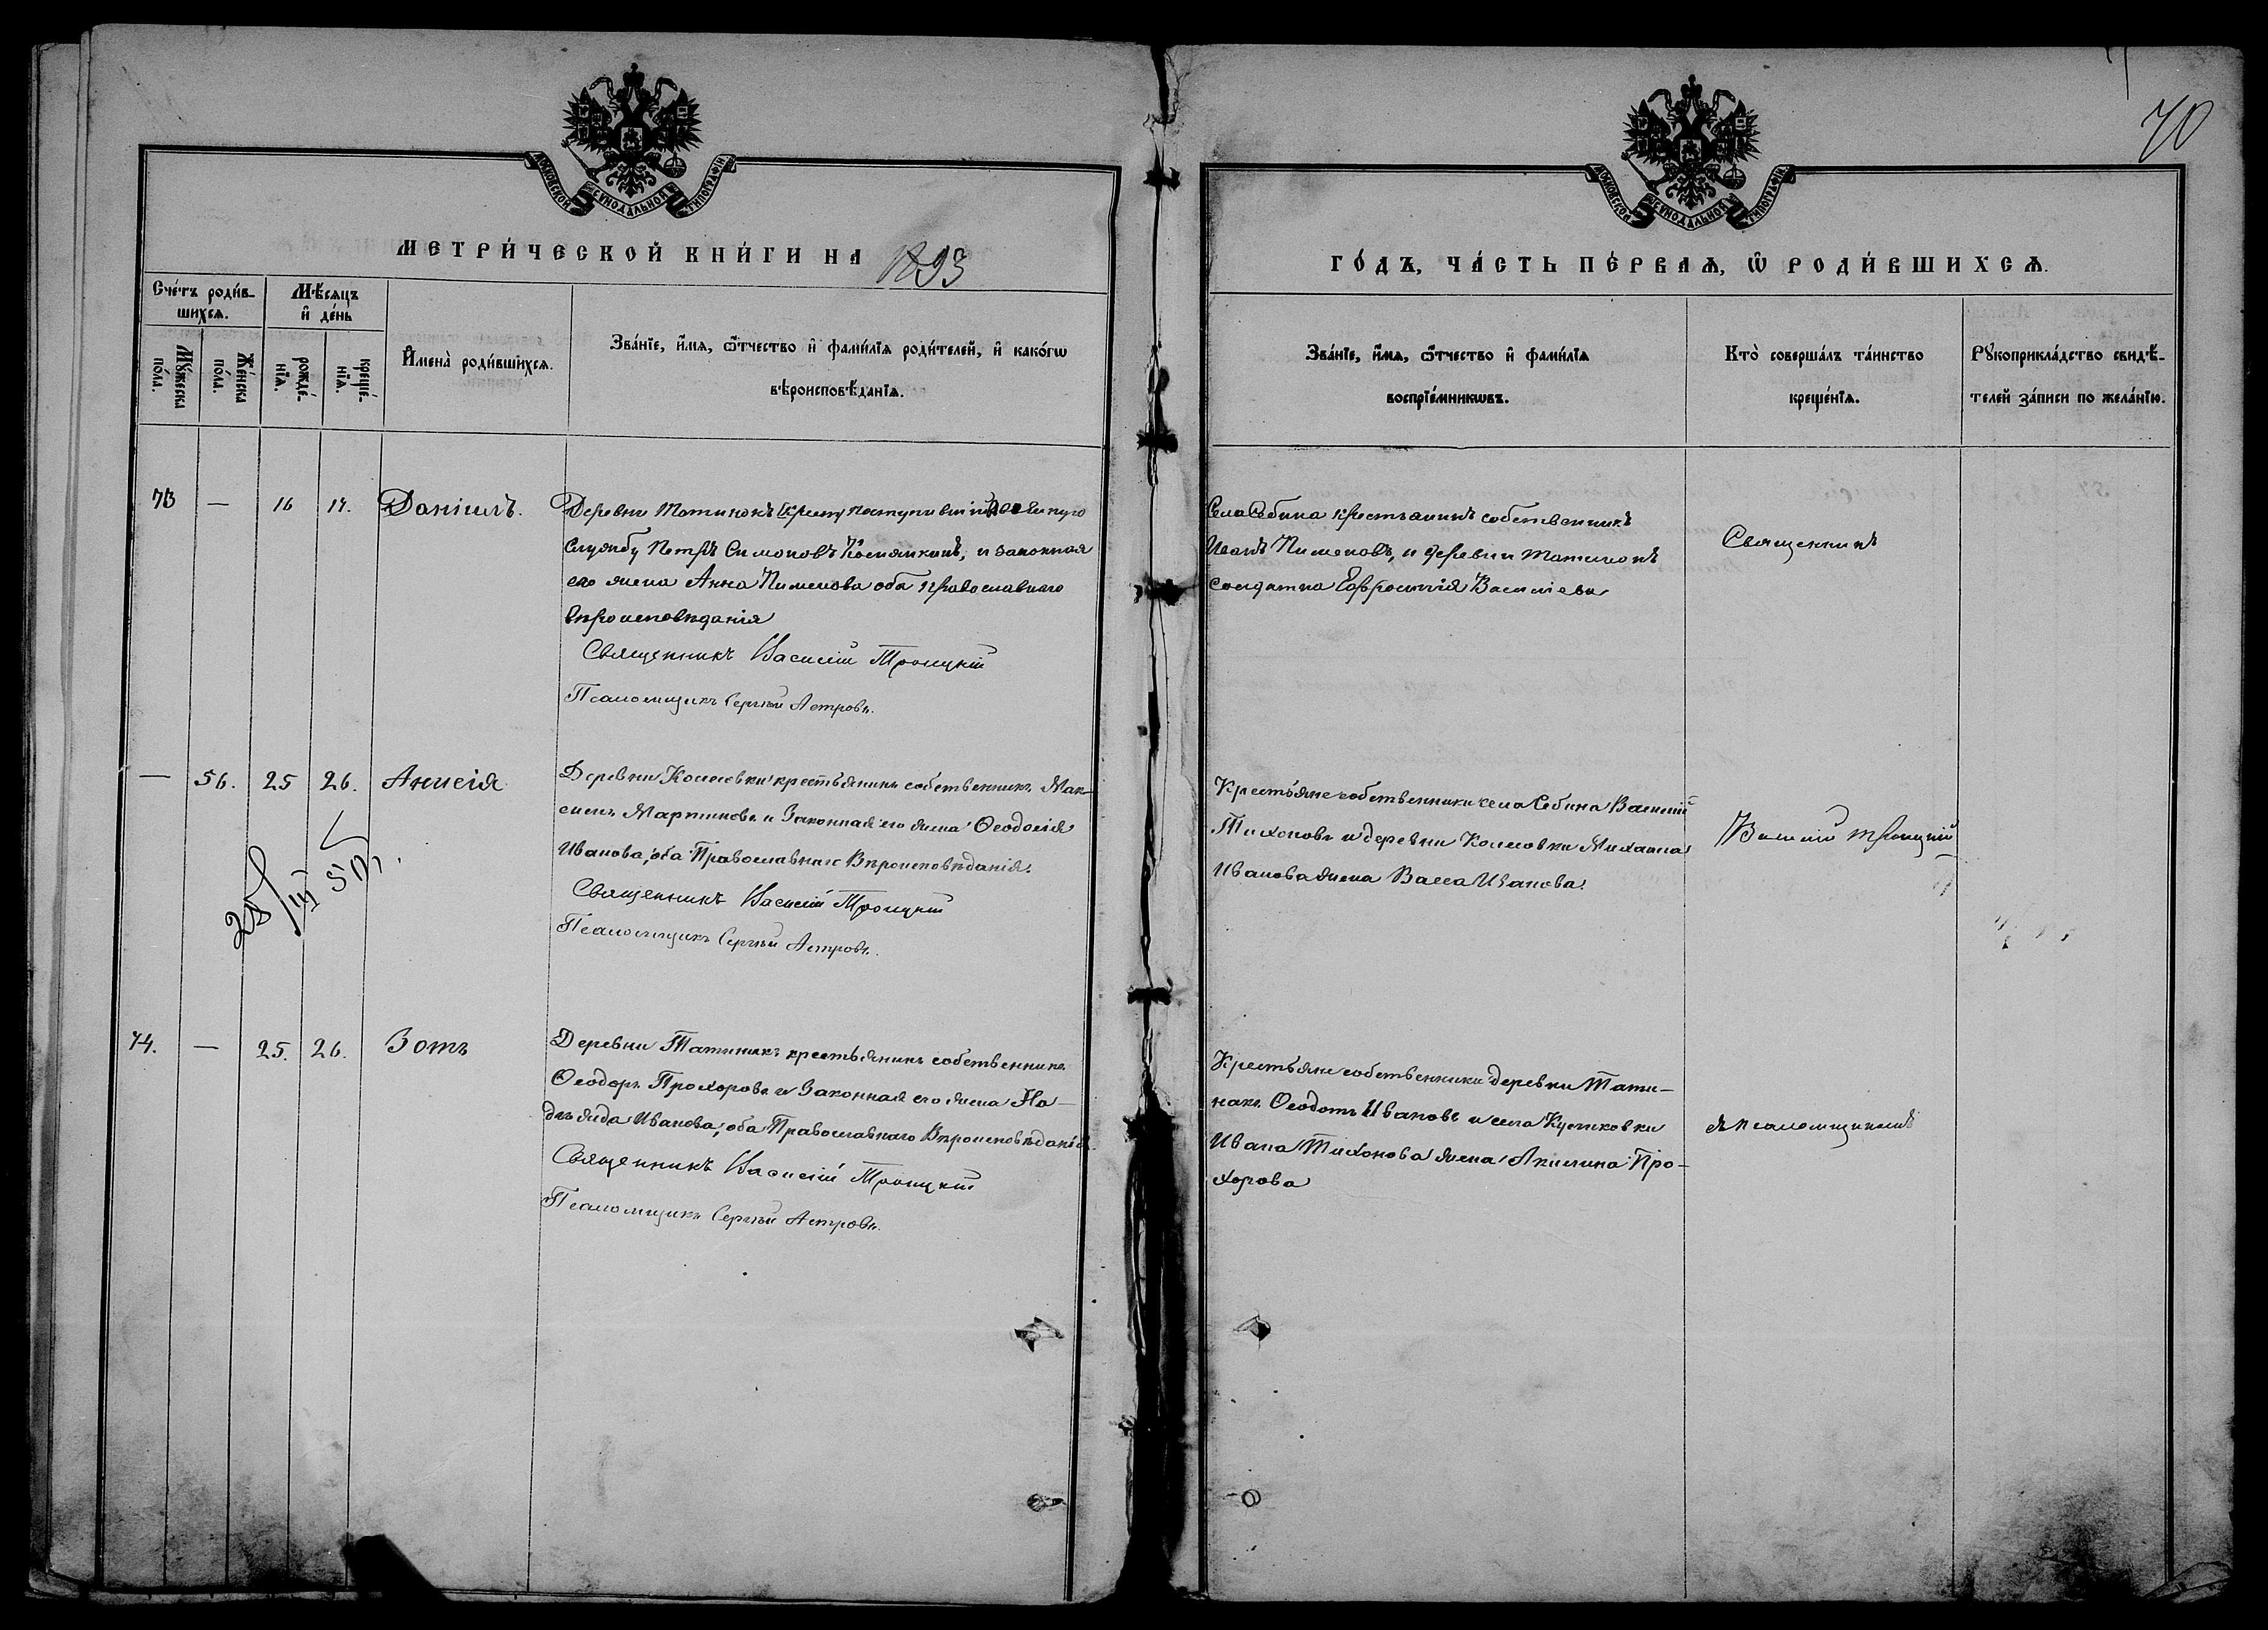 70
МОСКОВСКОЙ СѴНОДАЛЬНОЙ ТИПОГРАФІИ
МОСКОВСКОЙ СѴНОДАЛЬНОЙ ТИПОГРАФІИ
МЕТРИ́ЧЕСКОЙ КНИ́ГИ НА 1893
ГО́ДЪ, ЧА́СТЬ ПЕ́РВАѦ, Ѡ҆ РОДИ́ВШИХСѦ.
Сче́тъ роди́в-
шихсѧ.
Мꙋ́жеска по́ла.
Же́нска по́ла.
Мѣ́сѧцъ
и҆ де́нь
рожде́-нїѧ.
креще́-нїѧ.
И҆мена̀ роди́вшихсѧ.
Зва́нїе, и҆́мѧ, ѻ҆́тчество и҆ фамѝлїѧ роди́телей, и҆ како́гѡ
вѣроисповѣ́данїѧ.
Зва́нїе, и҆́мѧ, ѻ҆́тчество и҆ фамѝлїѧ
воспрїе́мникѡвъ.
Кто̀ соверша́лъ та́инство
креще́нїѧ.
Рꙋкоприкла́дство свидѣ́-
телей за́писи по жела́нїю.
73 — 16 17. Даніилъ.
Деревни Татинокъ поступившій
службу Петръ Симоновъ и законная
его жена Анна Пименова оба православнаго
вѣроисповѣданія
Священникъ Василій Троицкій
Псаломщикъ Сергѣй Астровъ.
Села Себина крестьянинъ собственникъ
Иванъ Пименовъ, и деревни Татинокъ
солдатка Евфросинія Василіева
Священникъ
— 56. 25 26. Анисія
Деревни Колесовки крестьянинъ собственникъ Мак-
симъ Мартиновъ и Законная его жена Ѳеодосія
Иванова, оба Православнаго Вѣроисповѣданія.
Священникъ Василій Троицкій
Псаломщикъ Сергѣй Астровъ.
Крестьяне собственники села Себина Василій
Тихоновъ и деревни Колесовки Михаила
Иванова жена Васса Иванова.
Василій Троицкій
28/III 50 г.
74. — 25. 26. Зотъ
Деревни Татинокъ крестьянинъ собственникъ
Ѳеодоръ Прохоровъ и Законная его жена На-
дежда Иванова, оба Православнаго Вѣроисповѣданія.
Священникъ Василій Троицкій
Псаломщикъ Сергѣй Астровъ.
Крестьяне собственники деревни Тати-
нокъ Ѳеодотъ Ивановъ и села Куликовки
Ивана Тихонова жена Акилина Про-
хорова
съ псаломщикомъ